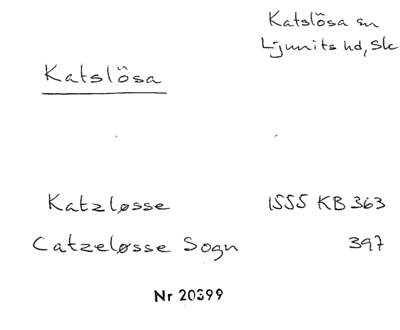 Katslösa sn
Ljunits hd, Sk
Katslösa
Katzløsse 1555 KB 363
Catzeløsse Sogn 397
Nr 20399